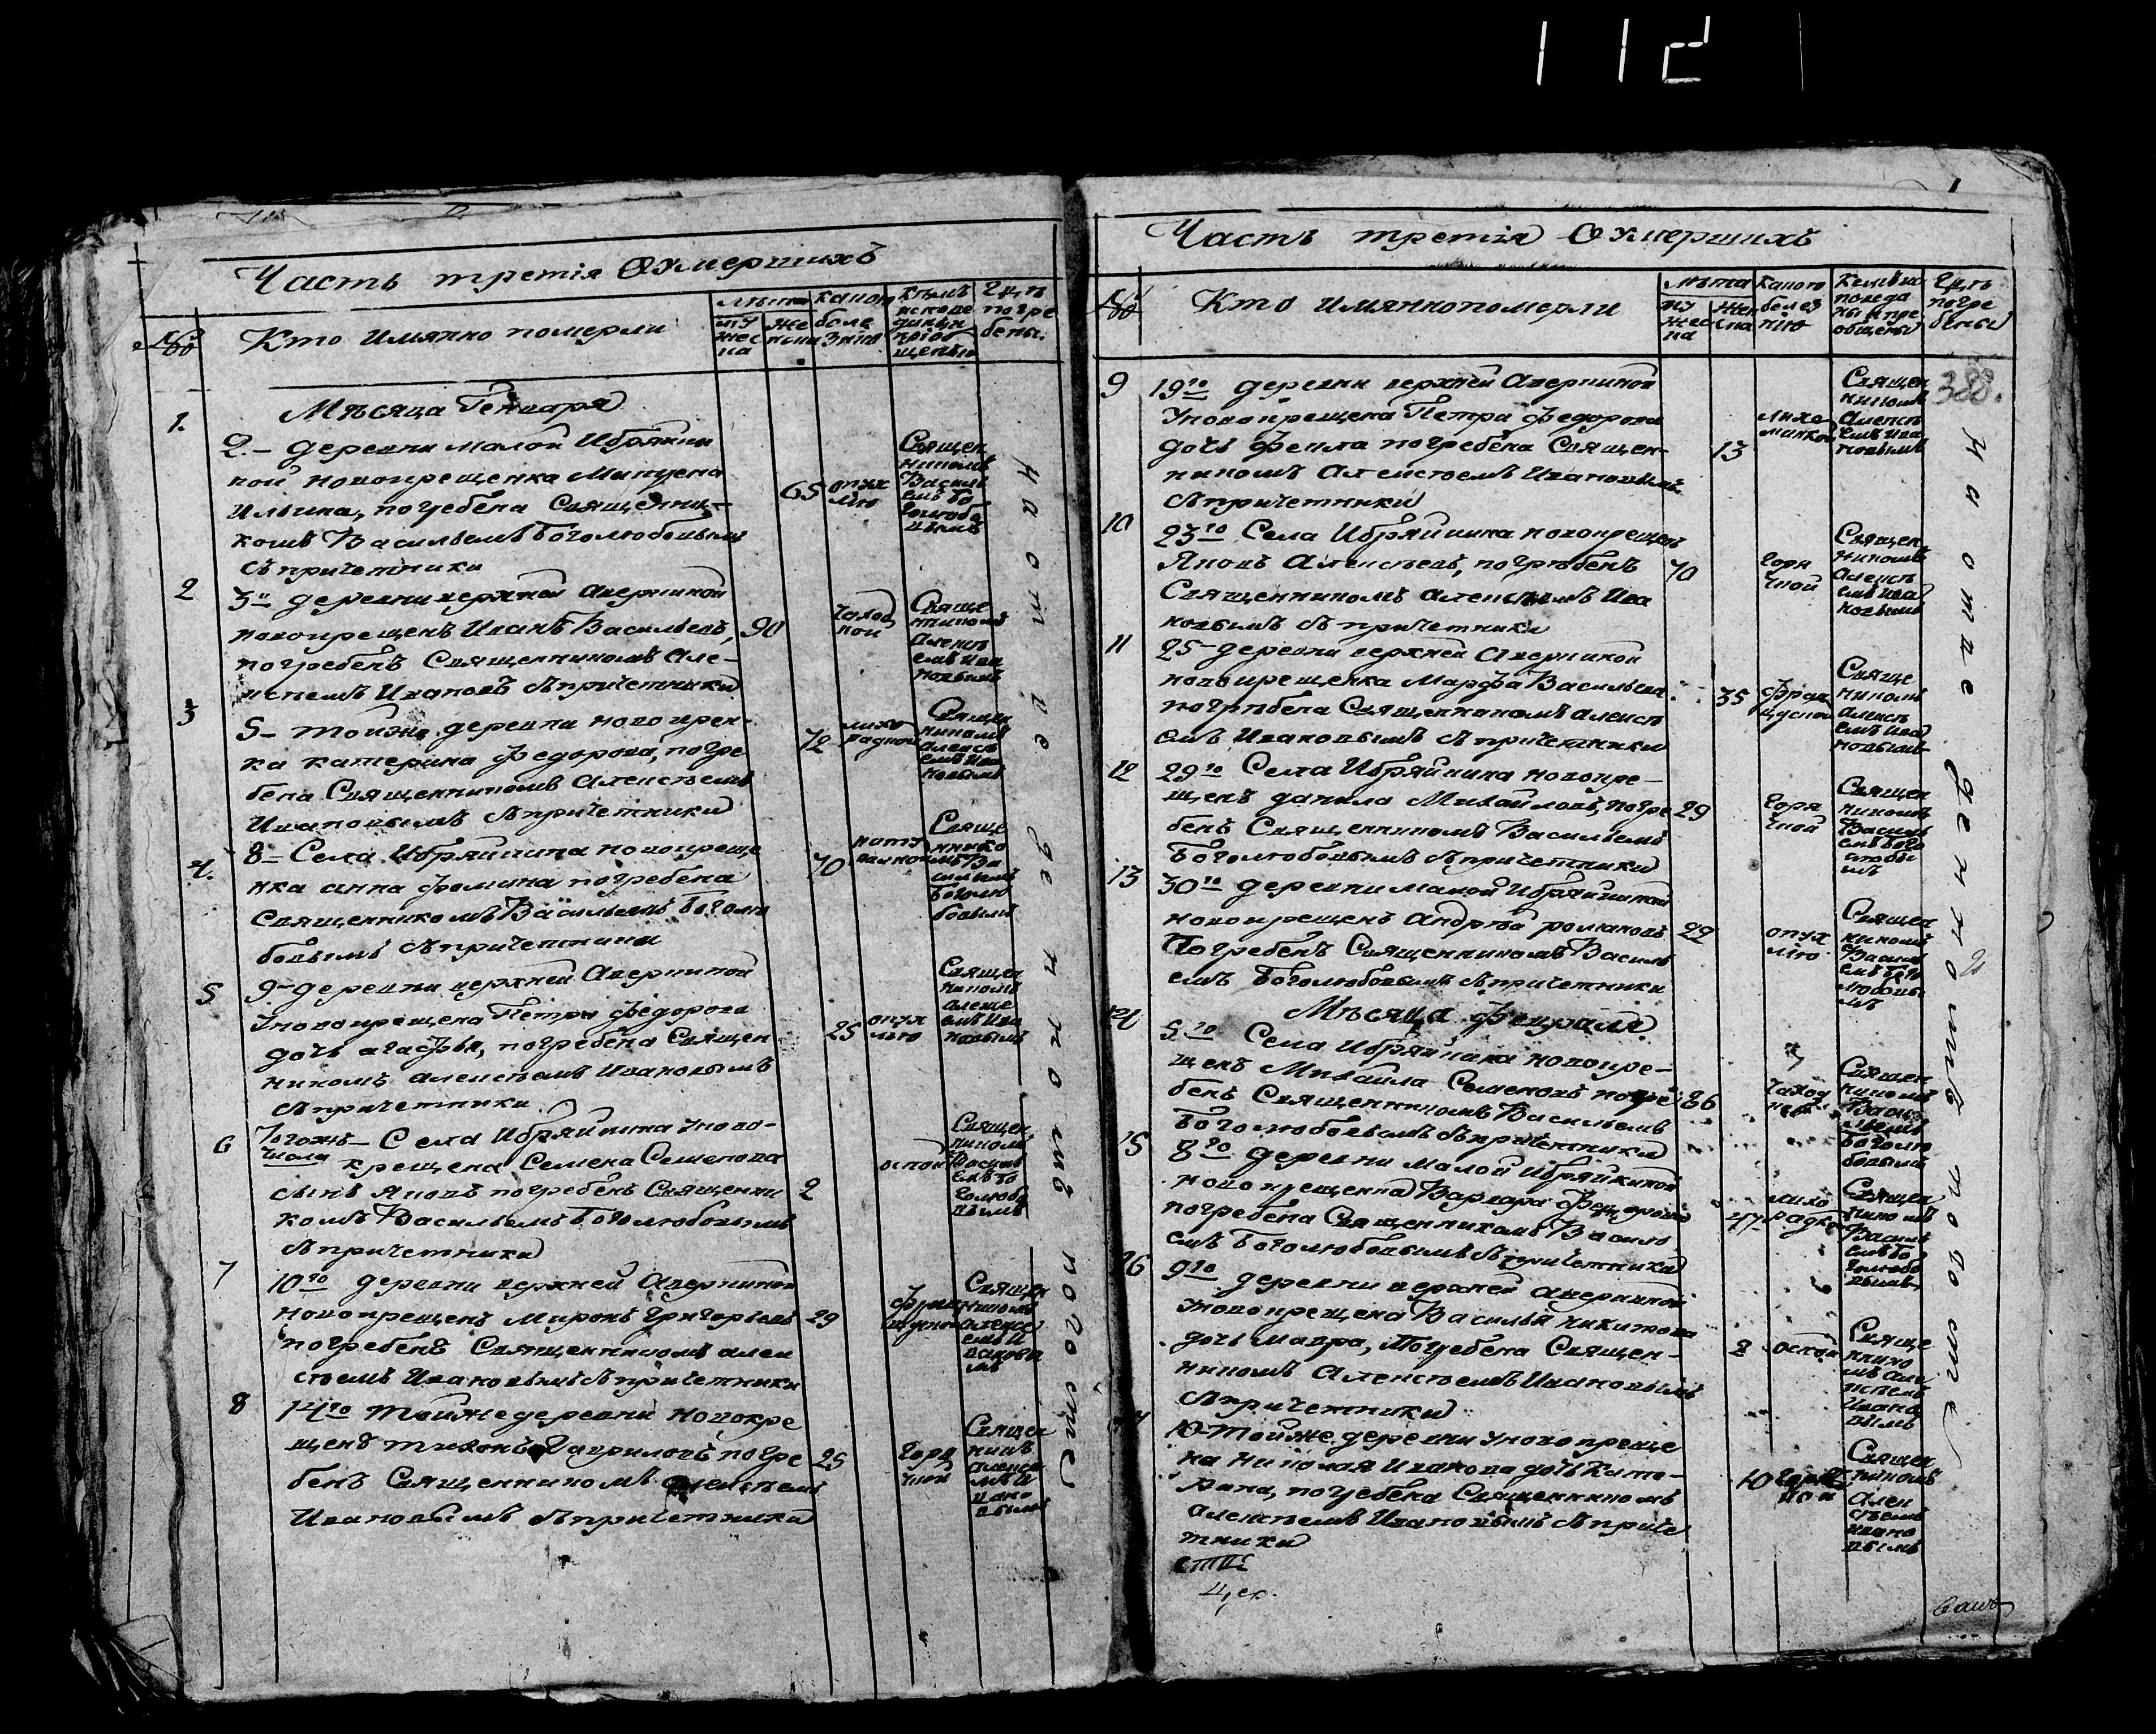 112
Часть третія Оумершихъ
№
Кто имянно померли
Лѣта
мужеска
женска
какою болезнію
кѣмъ исповеданы и приобщены
Гдѣ погребены.
Мѣсяца Генваря
1.
2 – деревни малой Ибряйкин
ской новокрещенка
Ильина, погребена Священни-
комъ Васильемъ Боголюбовымъ
съпричетники
65
опухлію
Священ
никомъ
Василь
емъ Бо
голюбо
вымъ
2
3 – деревни верхней Аверкиной
новокрещенъ Иванъ Васильевъ,
погребенъ Священникомъ Але-
ксѣемъ Ивановъ съпричетники
90
чахоткой
Священникомъ
Алексѣемъ Ивановымъ
3
5 – тойже деревни новокрещен-
ка катерина Федорова, погре
бена Священникомъ Алексѣемъ
Ивановымъ съпричетники
72
лихорадкой
Священникомъ
Алексѣемъ Ивановымъ
4.
8 – Села Ибряйкина новокреще
нка анна фомина погребена
Священникомъ Васильемъ Боголю
бовымъ съпричетники
70
Священникомъ Васильемъ
Боголюбовымъ
5
9 – деревни верхней Аверкиной
Уновокрещена Петра Федорова
дочь агафья, погребена Священ
никомъ алексѣемъ Ивановымъ
съпричетники
25
опухлію
Священникомъ
алексѣемъ Ивановымъ
6
Тогожъ числа – Села Ибряйкина Уново-
крещена Семена Семенова
сынъ Яковъ погребенъ Священни
комъ Васильемъ Боголюбовымъ
съпричетники
2
оспой
Священникомъ
Васильемъ Боголюбовымъ
7
10го деревни верхней Аверкиной
новокрещенъ Миронъ Григорьевъ
погребенъ Священникомъ алек
сѣемъ Ивановымъ съпричетники
29
Священникомъ
алексѣемъ Ивановымъ
8
14го тойже деревни новокре
щенъ тихонъ Гавриловъ погре
бенъ Священникомъ алексѣемъ
Ивановымъ съпричетники
25
горячкой
Священникомъ
алексѣемъ Ивановымъ
на отведенномъ погостѣ
Часть третія Оумершихъ
№
Кто имянно померли
Лѣта
мужеска
женска
какою болезнію
Кемъ исповеданы и приобщены
Гдѣ погребены
388.
9
19го деревни верхней Аверкиной
Уновокрещена Петра Федорова
дочь Фекла погребена Священ-
никомъ Алексѣемъ Ивановымъ
съпричетники
13
Священникомъ
Алексѣемъ Ивановымъ
10
23го Села Ибряйкина новокрещенъ
Яковъ Алексѣевъ, погребенъ
Священникомъ алексѣемъ Ива
новымъ съпричетники
70
горячкой
Священникомъ
Алексѣемъ Ивановымъ
11
25 – деревни верхней Аверкиной
новокрещенка Марфа Васильева
погребена Священникомъ алексѣ
емъ Ивановымъ съпричетники
35
Священникомъ
алексѣемъ Ивановымъ
12
29го Села Ибряйкина новокре-
щенъ данила Михайловъ, погре
бенъ Священникомъ Васильемъ
Боголюбовымъ съпричетники
29
горячкой
Священникомъ
Васильемъ Боголюбовымъ
13
30го деревни малой Ибряйкиной
новокрещенъ андрѣй романовъ
Погребенъ Священникомъ Василь
емъ Боголюбовымъ съпричетники
22
опухлію
Священникомъ
Васильемъ Боголюбовымъ
Мѣсяца февраля
14
5го Села Ибряйкина новокре-
щенъ Михайла Семеновъ погре
бенъ Священникомъ Васильемъ
Боголюбовымъ съпричетники
86
чахоткой
Священникомъ
Васильемъ
Боголюбовымъ
15
8го деревни малой Ибряйкиной
новокрещенка Варвара Федорова
погребена Священникомъ Василь
емъ Боголюбовымъ съпричетники
47
лихорадкой
Священникомъ
Васильемъ Боголюбовымъ
16
9го деревни верхней аверкиной
Уновокрещена Василья никитова
дочь мавра, Погребена Священ-
никомъ Алексѣемъ Ивановымъ
съпричетники
2
оспой
Священникомъ Алексѣемъ
Ивановымъ
10 – тойже деревни уновокреще
на николая Иванова дочь Кате-
рина, погребена Священникомъ
алексѣемъ Ивановымъ съприче
тники
10
Священникомъ
Алексѣемъ
Ивановымъ
на отведенномъ погостѣ